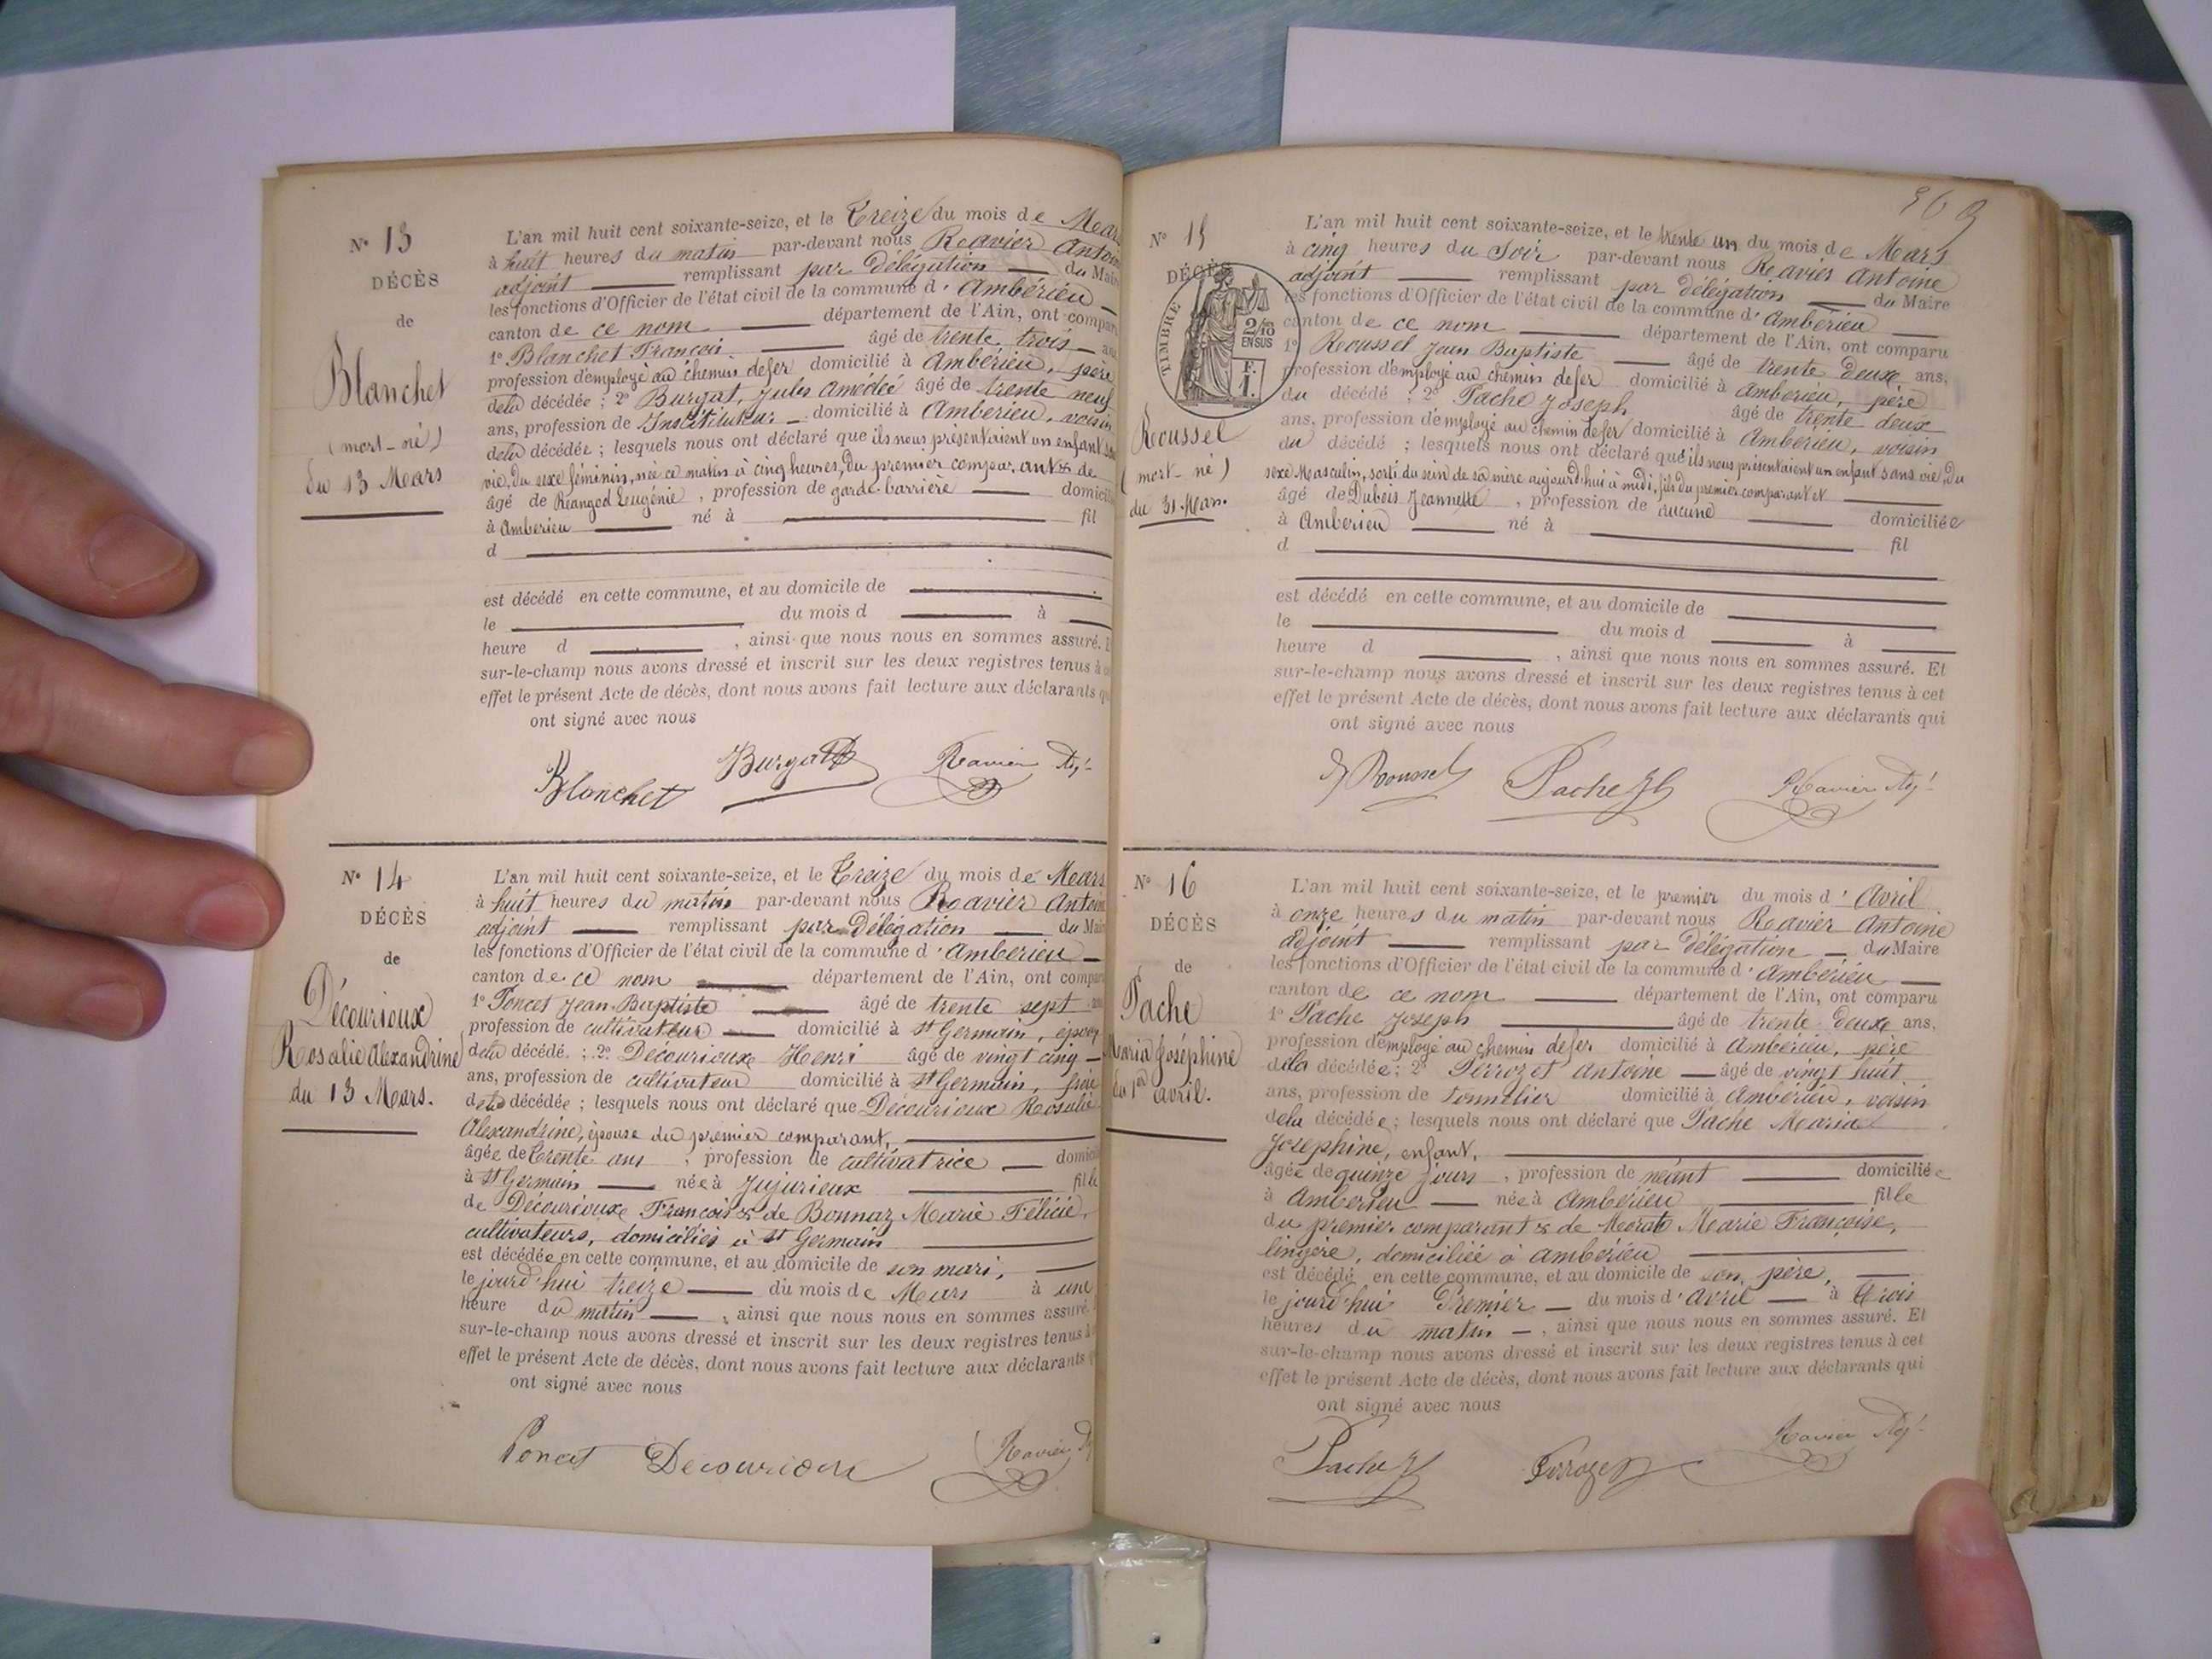 N° 13
DÉCÈS
de
Blanchet
(mort-né)
du 13 Mars
L'an mil huit cent soixante-seize, et le Treize du mois de Mars
à huit heures du matin par-devant nous Ravier Antoine
adjoint remplissant par délégation du Maire
les fonctions d'Officier de l'état civil de la commune d'Ambérieu
canton de ce nom département de l'Ain, ont comparu
1° Blanchet François âgé de trente trois ans
profession d'employé au chemin de fer domicilié à Ambérieu, père
de la décédée ; 2° Burgat, Jules Amédée âgé de trente neuf
ans, profession de Instituteur domicilié à Ambérieu, voisin
de la décédée ; lesquels nous ont déclaré que ils nous présentaient un enfant sans
vie, du sexe féminin, née ce matin à cinq heures, du premier comparant & de
âgé de Rangod Eugénie, profession de garde-barrière domicilié
à Amberieu né à fil
d
est décédé en cette commune, et au domicile de
le du mois d à
heure d , ainsi que nous nous en sommes assuré. E
sur-le-champ nous avons dressé et inscrit sur les deux registres tenus à c
effet le présent Acte de décès, dont nous avons fait lecture aux déclarants q
ont signé avec nous
Blanchet Burgat Ravier Adj.t
N° 14
DÉCÈS
de
Décourioux
Rosalie Alexandrine
du 13 Mars.
L'an mil huit cent soixante-seize, et le Treize du mois de Mars
à huit heures du matin par-devant nous Ravier Antoine
adjoint remplissant par délégation du Maire
les fonctions d'Officier de l'état civil de la commune d'Ambérieu
canton de ce nom département de l'Ain, ont comparu
1° Poncet Jean-Baptiste âgé de trente sept ans
profession de cultivateur domicilié à St Germain, époux
de la décédé ; 2° Décourioux Henri âgé de vingt cinq
ans, profession de cultivateur domicilié à St Germain, frère
de la décédée ; lesquels nous ont déclaré que Décourioux Rosalie
Alexandrine, épouse du premier comparant,
âgée de trente ans, profession de cultivatrice domicil
à St Germain née à Jujurieux fille
de Décourioux François & de Bonnaz Marie Félicie,
cultivateurs, domiciliés à St Germain
est décédée en cette commune, et au domicile de son mari,
le jourd'hui treize du mois de Mars à une
heure du matin , ainsi que nous nous en sommes assuré.
sur-le-champ nous avons dressé et inscrit sur les deux registres tenus à
effet le présent Acte de décès, dont nous avons fait lecture aux déclarants
ont signé avec nous
Poncet Decourioux Ravier
369
N° 15
DÉCÈS
TIMBRE
2/10 EN SUS
F. 1.
Roussel
(mort-né)
du 31 Mars.
L'an mil huit cent soixante-seize, et le trente un du mois de Mars
à cinq heures du Soir par-devant nous Ravier Antoine
adjoint remplissant par délégation du Maire
les fonctions d'Officier de l'état civil de la commune d'Ambérieu
canton de ce nom département de l'Ain, ont comparu
1° Roussel Jean Baptiste âgé de trente deux ans,
profession d'employé au chemin de fer domicilié à Ambérieu, père
du décédé ; 2° Pache Joseph âgé de trente deux
ans, profession d'employé au chemin de fer domicilié à Ambérieu, voisin
du décédé ; lesquels nous ont déclaré que ils nous présentaient un enfant sans vie, Du
sexe Masculin, sorti du sein de sa mère aujourd'hui à midi, fils du premier comparant et
âgé de Dubois Jeannette, profession de aucune domiciliée
à Amberieu né à fil
d
est décédé en cette commune, et au domicile de
le du mois d à
heure d , ainsi que nous nous en sommes assuré. Et
sur-le-champ nous avons dressé et inscrit sur les deux registres tenus à cet
effet le présent Acte de décès, dont nous avons fait lecture aux déclarants qui
ont signé avec nous
Roussel Pache Ravier Adj.t
N° 16
DÉCÈS
de
Pache
Maria Joséphine
du 1er avril.
L'an mil huit cent soixante-seize, et le premier du mois d'Avril
à onze heures du matin par-devant nous Ravier Antoine
adjoint remplissant par délégation du Maire
les fonctions d'Officier de l'état civil de la commune d'Ambérieu
canton de ce nom département de l'Ain, ont comparu
1° Pache Joseph âgé de trente-deux ans,
profession d'employé au chemin de fer domicilié à Ambérieu, père
de la décédée ; 2° Perrozet Antoine âgé de vingt huit
ans, profession de tonnelier domicilié à Ambérieu, voisin
de la décédée ; lesquels nous ont déclaré que Pache Maria
Josephine, enfant,
âgée de quinze jours, profession de néant domiciliée
à Amberieu née à Ambérieu fille
du premier comparant & de Morat Marie Françoise,
lingère, domiciliée à ambérieu
est décédé en cette commune, et au domicile de son père,
le jourd'hui Premier du mois d'avril à trois
heures du matin , ainsi que nous nous en sommes assuré. Et
sur-le-champ nous avons dressé et inscrit sur les deux registres tenus à cet
effet le présent Acte de décès, dont nous avons fait lecture aux déclarants qui
ont signé avec nous
Pache Perrozet Ravier Adj.t